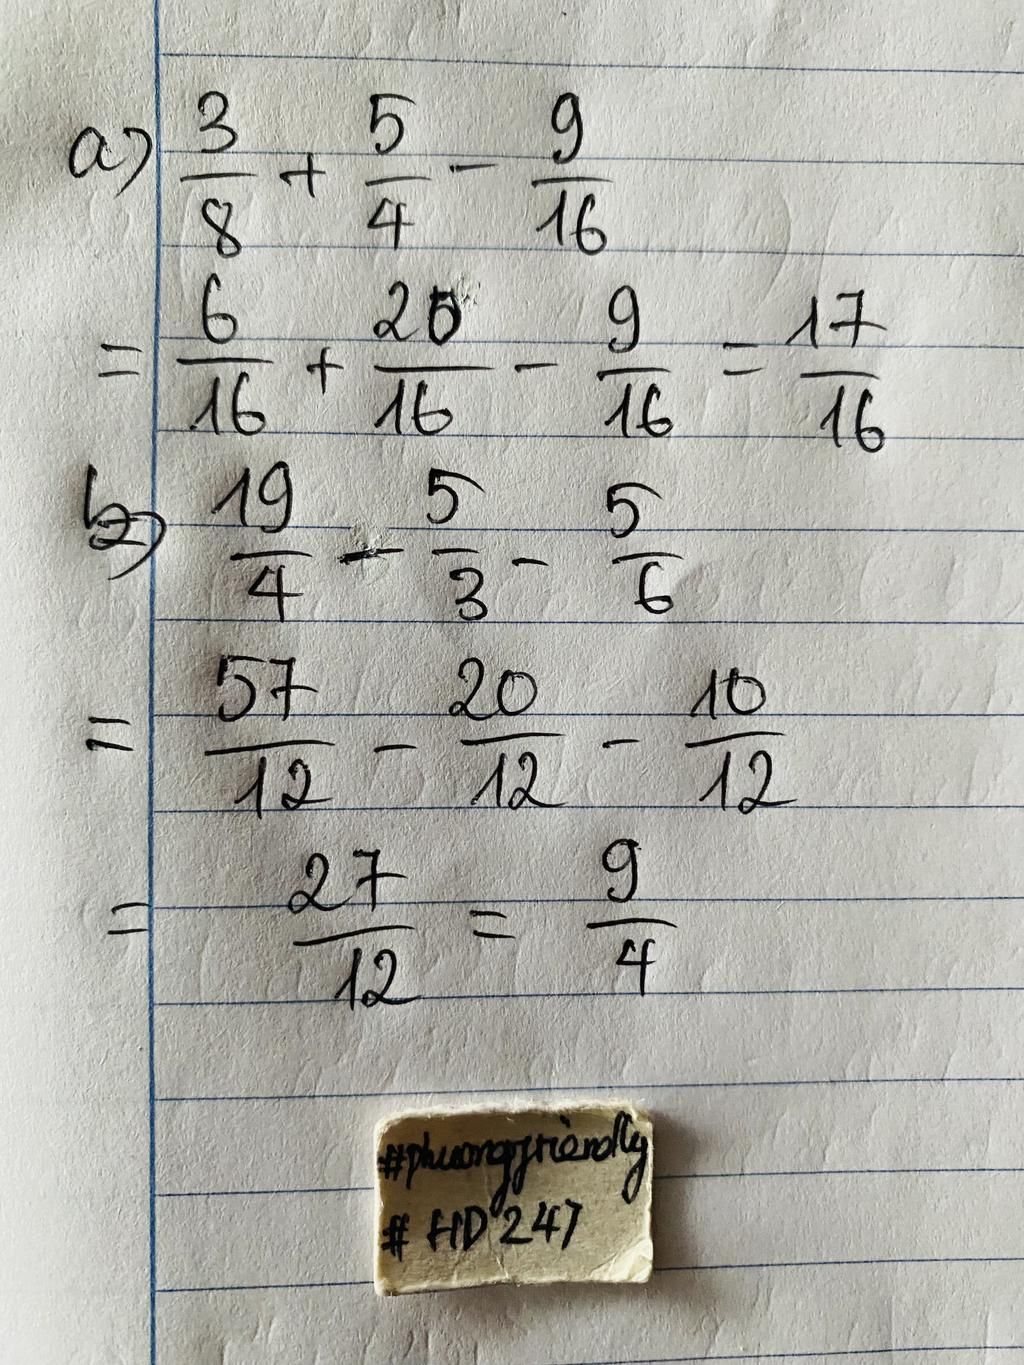 a) 3/8 + 5/4 - 9/16
= 6/16 + 20/16 - 9/16 = 17/16
b) 19/4 - 5/3 - 5/6
= 57/12 - 20/12 - 10/12
= 27/12 = 9/4
#phuongfriendly
# HD 247